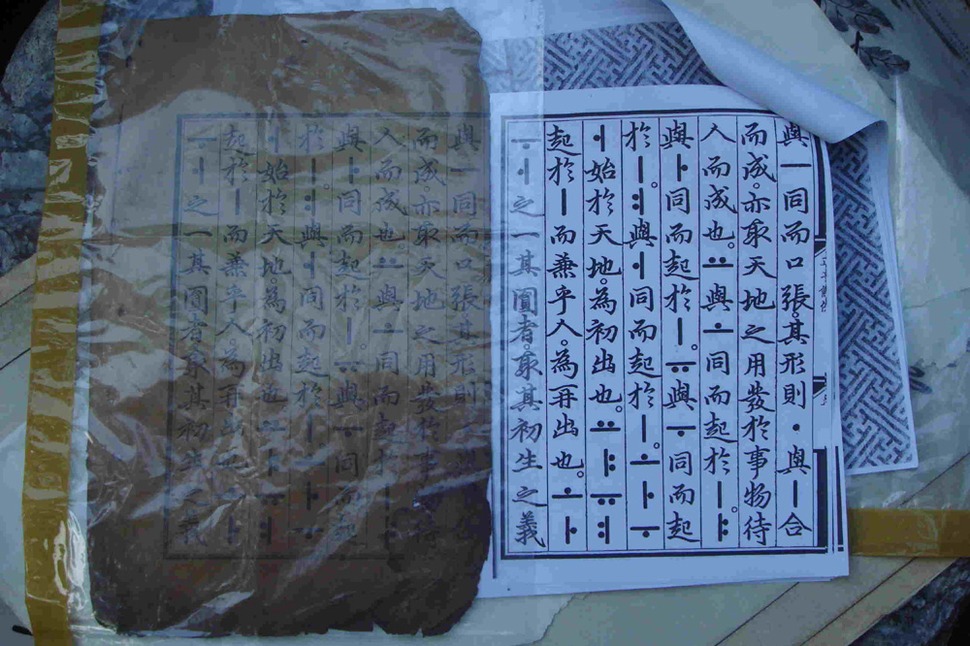 與ㅡ同而口張。其形則ㆍ與ㅣ合
而成。亦取天地之用發於事物待
人而成也。ㅛ與ㅗ同而起於ㅣ。ㅑ
與ㅏ同而起於ㅣ。ㅠ與ㅜ同而起
於ㅣ。ㅕ與ㅓ同而起於ㅣ。ㅗㅏㅜ
ㅓ始於天地。為初出也。ㅛㅑㅠㅕ
起於ㅣ而兼乎人。為再出也。ㅗㅏ
ㅜㅓ之一其圓者。取其初生之義
與一同而口張其形則
而成。亦取天地之用發於事物待
人而成也ㅛ與ㅗ同而起於
與ㅏ同而起於ㅣ。ㅠ與ㅜ同而起
於ㅣ。ㅕ與ㅓ同而起於ㅣㅗㅏㅜ
ㅓ始於天地。為初出也ㅛㅑㅠㅕ
起於ㅣ而兼乎人。為再出也ㅗㅏ
ㅜㅓ之一其圓者。取其初生之義